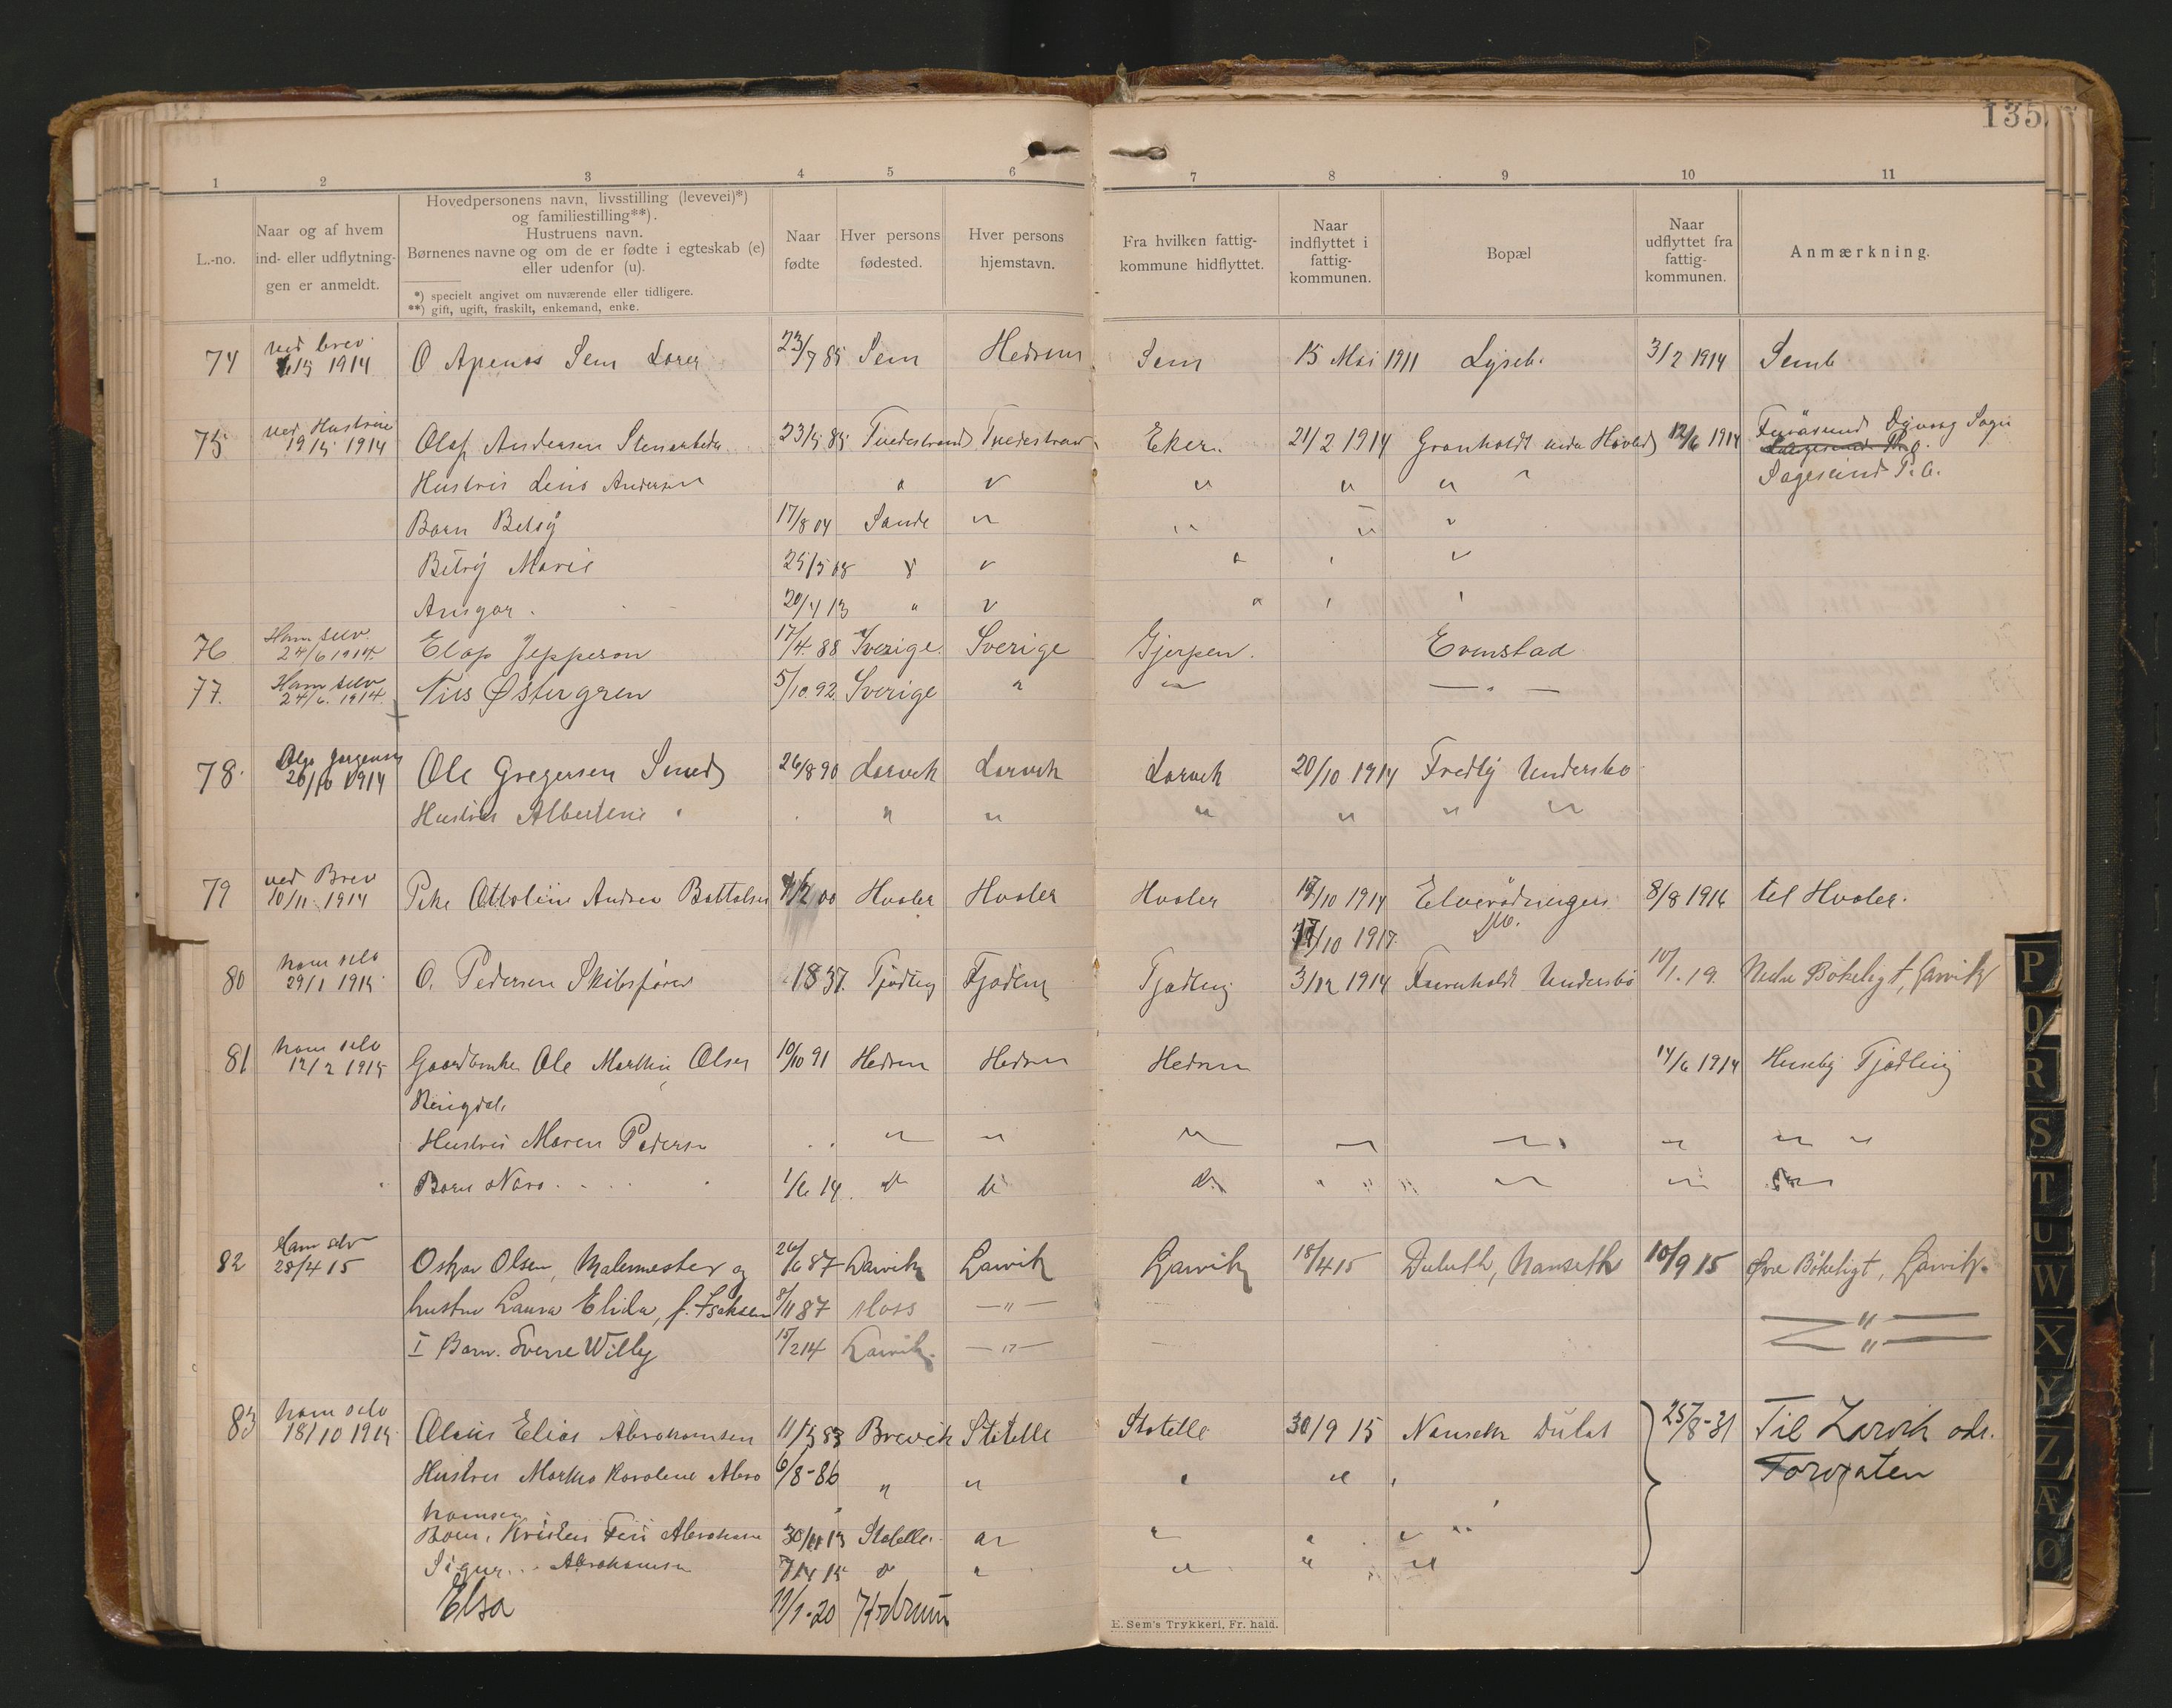 135
1 2 3 4 5 6 7 8 9 10 11
L.-no.
Naar og af hvem
ind- eller udflytnin-
gen er anmeldt.
Hovedpersonens navn, livsstilling (levevei)*)
og familiestilling**).
Hustruens navn.
Børnenes navne og om de er fødte i egteskab (e)
eller udenfor (u).
*) specielt angivet om nuværende eller tidligere.
**) gift, ugift, fraskilt, enkemand, enke.
Naar
fødte
Hver persons
fødested.
Hver persons
hjemstavn.
Fra hvilken fattig-
kommune hidflyttet.
Naar
indflyttet i
fattig-
kommunen.
Bopæl
Naar
udflyttet fra
fattig-
kommunen.
Anmærkning.
ved brev
74 1914 O Apenes Sem 23/7 85 Sem Hedrum Sem 15 Mai 1911 Lyseb. 3/2 1914 Semb
ved Hustruen
75 19/5 1914 Olaf Andersen Stenarbeider 23/5 85 Tvedestrand Tvedestrand Eker 21/2 1914 Granholdt under Hovland 12/6 1914 Dÿvaag Sogn
Hustru Andersen " " " " " Sagesund P. O.
Barn Betsÿ 17/8 04 Sande " " " "
Marie 25/5 08 " " " " "
Ansgar. 20/4 13 " " " " "
Ham selv
76 24/6 1914. Elof Jeppeson 17/4 88 Sverige Sverige Gjerpen. Evenstad
Ham selv
77. 24/6. 1914. Nils Østergren 5/10. 92 Sverige " " — " —
78. 20/10 1914 Ole Gregersen Smed 26/8 90 Larvik Larvik Larvik 20/10 1914 Fredly Undersbo
Hustru Albertine " " " " " " "
ved Brev
79 10/11 1914 Ottoline Andrea 00 Hvaler Hvaler Hvaler 10 1914 8/8 1916 til Hvaler.
10 1917
ham selv
80 29/1 1915 O. Pedersen Skibsfører 1837. Tjødling Tjødling Tjødling 3/12 1914 Furuholdt Undersbo 10/1. 19. Nedre Bökeligt, Larvik
ham selv
81 12/2 1915 Gaardbruker Ole Martin Olsen 10/10 91 Hedrum Hedrum Hedrum 14/6 1914 Huseby Tjødling
Ringdal
Hustru Maren Pedersen " " " " " " " "
Barn Nora 1/6 14. " " " " " " "
Ham selv
82 28/4 15 Oskar Olsen, Malermester og 26/6 87 Larvik Larvik Larvik 18/4 15 Duluth, Nanseth 10/9 15 Øvre Bökeligt, Larvik.
hustru Laura Elida, f. Isaksen 3/11 87 Moss — " — — " —
I Barn. Sverre Willy 15/2 14 Larvik. — " — — " —
ham selv
83 18/10 1915 Elias Abrahamsen 83 Brevik Statelle Statelle 30/9 15 Nanseth Dulut 25/8-31 Til Larvik
Hustru Karoline Abra 6/8-86 " " " " " Torvgaten
hamsen
Barn. Abrahamsen 30/11 13 Statelle " " " "
Sigur Abrahamsen 15 " " " " "
Elsa 11/1-20 Hedrum
E. Sem's Trykkeri, Fr. hald.
P
Q
R
S
T
U
W
X
Y
Z
Æ
Ø